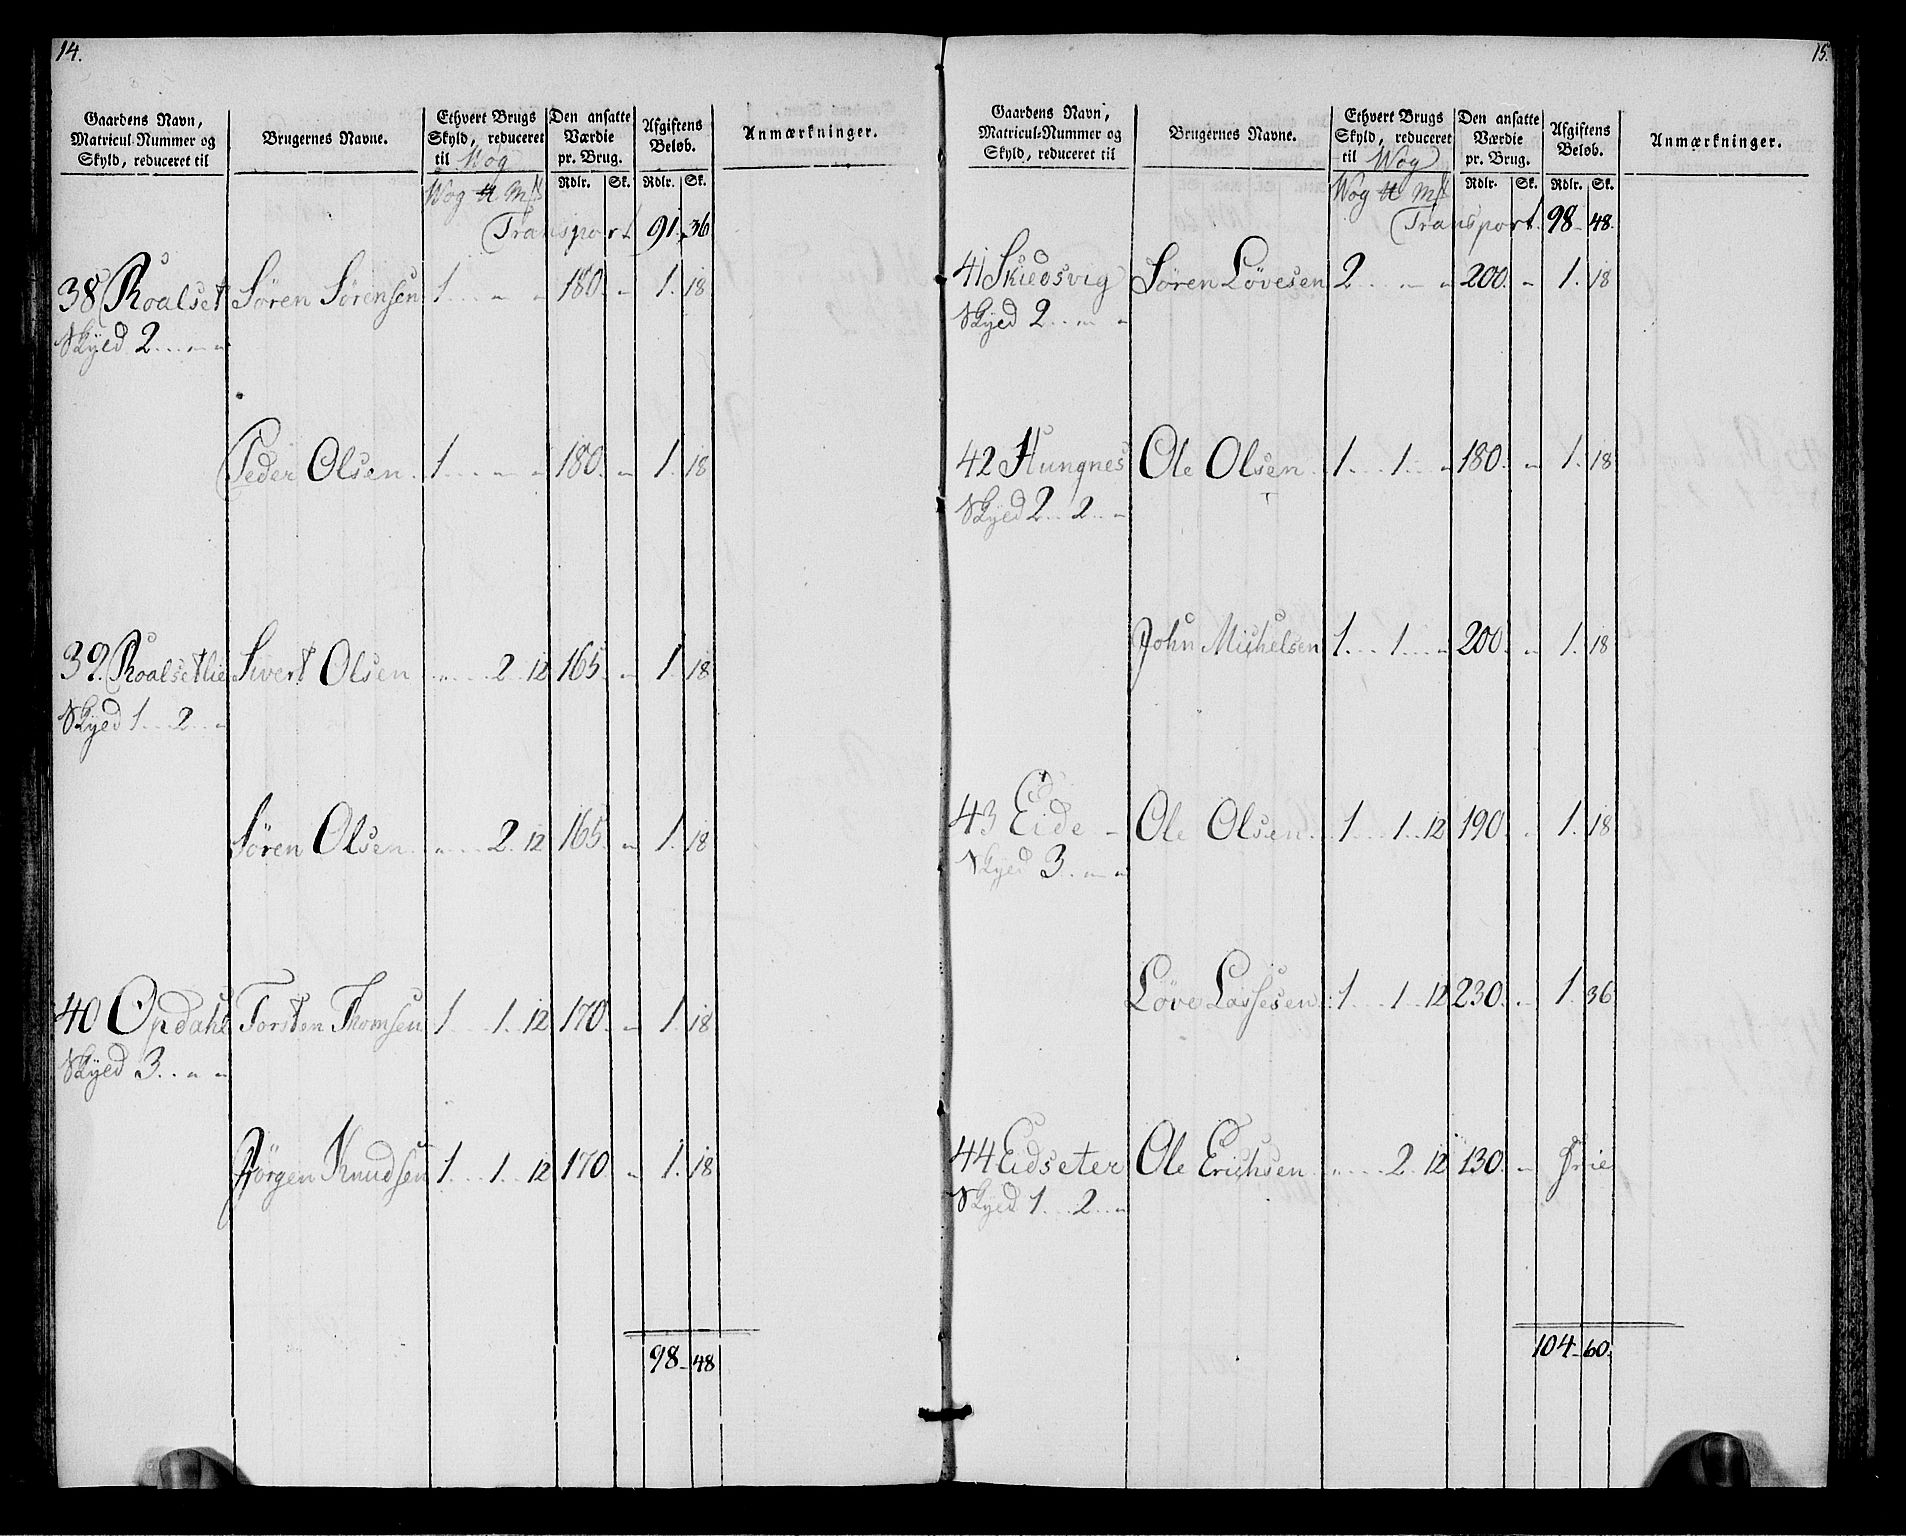 14.
Gaardens Navn, Matricul-Nummer og Skyld, reduceret til | Brugernes Navne. | Ethvert Brugs Skyld, reduceret til Wog | Den ansatte Værdie pr. Brug. | Afgiftens Beløb. | Anmærkninger.
Wog | Rdlr. | Sk. | Rdlr. | Sk.
Transport 91. 36
38 Roalset Søren Sørensen 1 .. " " 180. " 1. 18
Skyld 2 .. " "
Peder Olsen. 1 .. " " 180. " 1. 18
39. Roalsetlie Sivert Olsen " .. 2. 12 165. " 1. 18
Skyed 1 .. 2 .. "
Søren Olsen " .. 2. 12 165. " 1. 18
40 Opdahl Torsten Thomsen 1 .. 1. 12 170. " 1. 18
Skyed 3 .. " "
Jørgen Knudsen 1 .. 1. 12 170. " 1. 18
98. 48
15.
Gaardens Navn, Matricul-Nummer og Skyld, reduceret til | Brugernes Navne. | Ethvert Brugs Skyld, reduceret til Wog | Den ansatte Værdie pr. Brug. | Afgiftens Beløb. | Anmærkninger.
Wog | Rdlr. | Sk. | Rdlr. | Sk.
Transport. 98. 48.
41 Skiedsvig Søren Løvesen 2 .. " " 200. " 1. 18
Skyed 2 .. " "
42 Hungnes Ole Olsen 1 .. 1. " 180. " 1. 18
Skyed 2 .. 2 .. "
John Michelsen 1 .. 1 .. " 200. " 1. 18
43 Eide Ole Olsen. 1 .. 1. 12 190. " 1. 18
Skyed 3 .. " "
Løve Lassesen 1 .. 1 .. 12 230. " 1. 36
44 Eidseter Ole Erichsen " .. 2. 12 130. " Frie
Skyed 1 .. 2 .. "
104. 60.